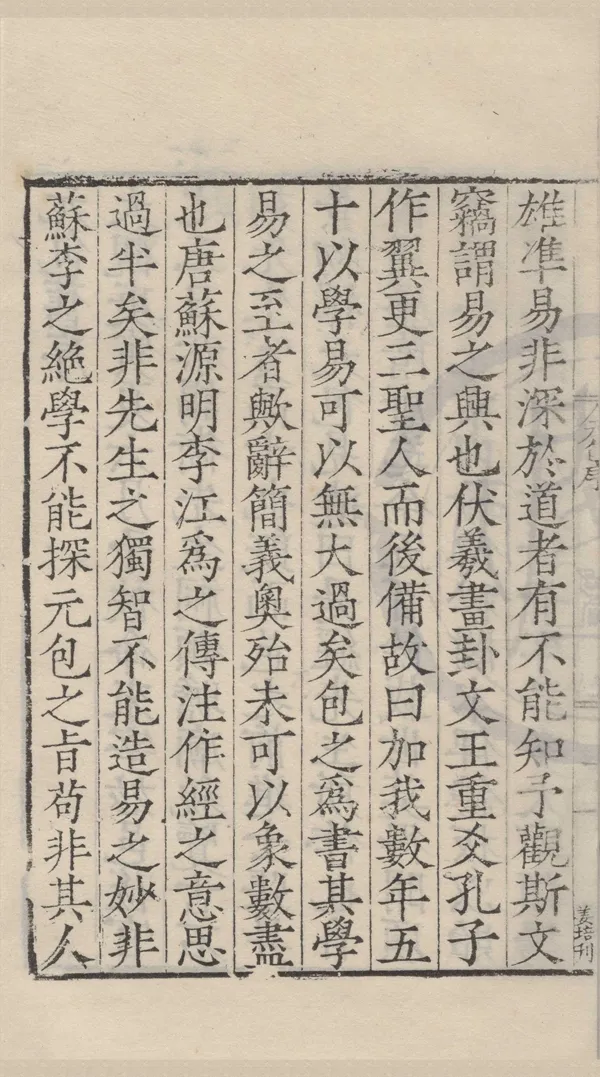 雄準易非深於道者有不能知予觀斯文
竊謂易之興也伏羲畫卦文王重爻孔子
作翼更三聖人而後備故曰加我數年五
十以學易可以無大過矣包之爲書其學
易之至者歟辭簡義奧殆未可以象數盡
也唐蘇源明李江爲之傳注作經之意思
過半矣非先生之獨智不能造易之妙非
蘇李之絶學不能探元包之旨苟非其人
姜培刊